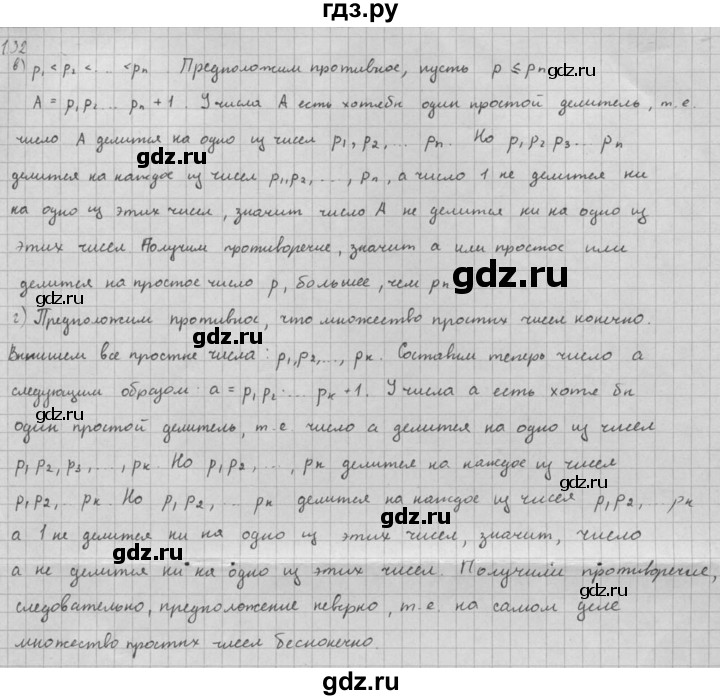 гдз.ру
132
в) p₁ < p₂ < ... < pₙ Предположим противное, пусть p ≤ pₙ
A = p₁p₂ ... pₙ + 1. У числа A есть хотябы один простой делитель, т.е.
число A делится на одно из чисел p₁, p₂, ... pₙ. Но p₁ p₂ p₃ ... pₙ
gdz.ru
делится на каждое из чисел p₁, p₂, ..., pₙ, а число 1 не делится ни
на одно из этих чисел, значит число A не делится ни на одно из
gdz.ru
этих чисел Получим противоречие, значит a или простое или
делится на простое число p, большее, чем pₙ
gdz.ru
gdz.ru
г) Предположим противное, что множество простых чисел конечно.
Впишем все простые числа: p₁, p₂, ..., pₖ. Составим теперь число a
gdz.ru
следующим образом: a = p₁ p₂ · ... pₖ + 1. У числа a есть хотя бы
один простой делитель, т.е число a делится на одно из чисел
gdz.ru
p₁, p₂, p₃, ..., pₖ. Но p₁, p₂, ..., pₖ делится на каждое из чисел
p₁, p₂, ... pₖ. Но p₁, p₂, ... pₖ делится на каждое из чисел p₁, p₂, ... pₖ
gdz.ru
а 1 не делится ни на одно из этих чисел, значит, число
gdz.ru
a не делится ни на одно из этих чисел. Получили противоречие,
следовательно, предположение неверно, т.е. на самом деле
gdz.ru
множество простых чисел бесконечно.